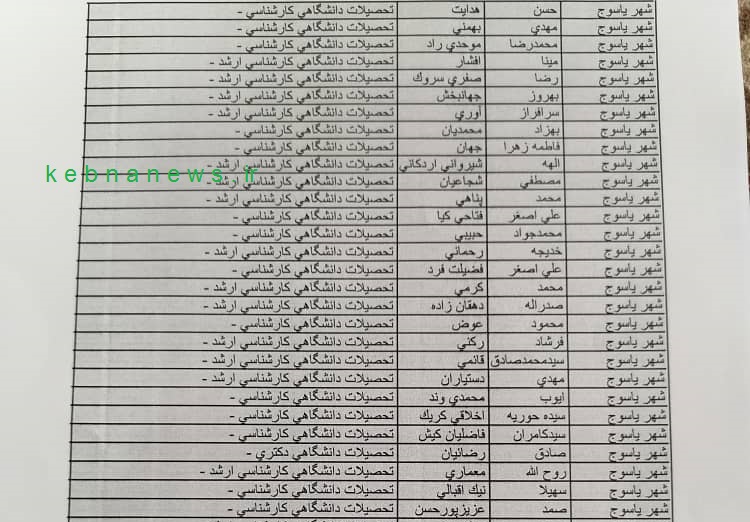 شهر ياسوج حسن هدايت تحصيلات دانشگاهي كارشناسي -
شهر ياسوج مهدي بهمني تحصيلات دانشگاهي كارشناسي -
شهر ياسوج محمدرضا موحدي راد تحصيلات دانشگاهي كارشناسي -
شهر ياسوج مينا افشار تحصيلات دانشگاهي كارشناسي ارشد -
شهر ياسوج رضا صفري سروك تحصيلات دانشگاهي كارشناسي -
شهر ياسوج بهروز جهانبخش تحصيلات دانشگاهي كارشناسي ارشد -
شهر ياسوج سرافراز آوري تحصيلات دانشگاهي كارشناسي ارشد -
شهر ياسوج بهزاد محمديان تحصيلات دانشگاهي كارشناسي -
شهر ياسوج فاطمه زهرا جهان تحصيلات دانشگاهي كارشناسي -
شهر ياسوج الهه شيرواني اردكاني تحصيلات دانشگاهي كارشناسي ارشد -
kebnanews.ir
شهر ياسوج مصطفي شجاعيان تحصيلات دانشگاهي كارشناسي ارشد -
شهر ياسوج محمد پناهي تحصيلات دانشگاهي كارشناسي ارشد -
شهر ياسوج علي اصغر فتاحي كيا تحصيلات دانشگاهي كارشناسي -
شهر ياسوج محمدجواد حبيبي تحصيلات دانشگاهي كارشناسي -
شهر ياسوج خديجه رحماني تحصيلات دانشگاهي كارشناسي ارشد -
شهر ياسوج علي اصغر فضيلت فرد تحصيلات دانشگاهي كارشناسي -
شهر ياسوج محمد كرمي تحصيلات دانشگاهي كارشناسي -
شهر ياسوج صدراله دهقان زاده تحصيلات دانشگاهي كارشناسي ارشد -
شهر ياسوج محمود عوض تحصيلات دانشگاهي كارشناسي -
شهر ياسوج فرشاد ركني تحصيلات دانشگاهي كارشناسي ارشد -
شهر ياسوج سيدمحمدصادق قائمي تحصيلات دانشگاهي كارشناسي ارشد -
شهر ياسوج مهدي دستياران تحصيلات دانشگاهي كارشناسي ارشد -
شهر ياسوج ايوب محمدي وند تحصيلات دانشگاهي كارشناسي -
شهر ياسوج سيده حوريه اخلاقي كريك تحصيلات دانشگاهي كارشناسي -
شهر ياسوج سيدكامران فاضليان كيش تحصيلات دانشگاهي كارشناسي -
شهر ياسوج صادق رضائيان تحصيلات دانشگاهي دكتري -
شهر ياسوج روح الله معماري تحصيلات دانشگاهي كارشناسي ارشد -
شهر ياسوج سهيلا نيك اقبالي تحصيلات دانشگاهي كارشناسي -
شهر ياسوج صمد عزيزپورحسن تحصيلات دانشگاهي كارشناسي -